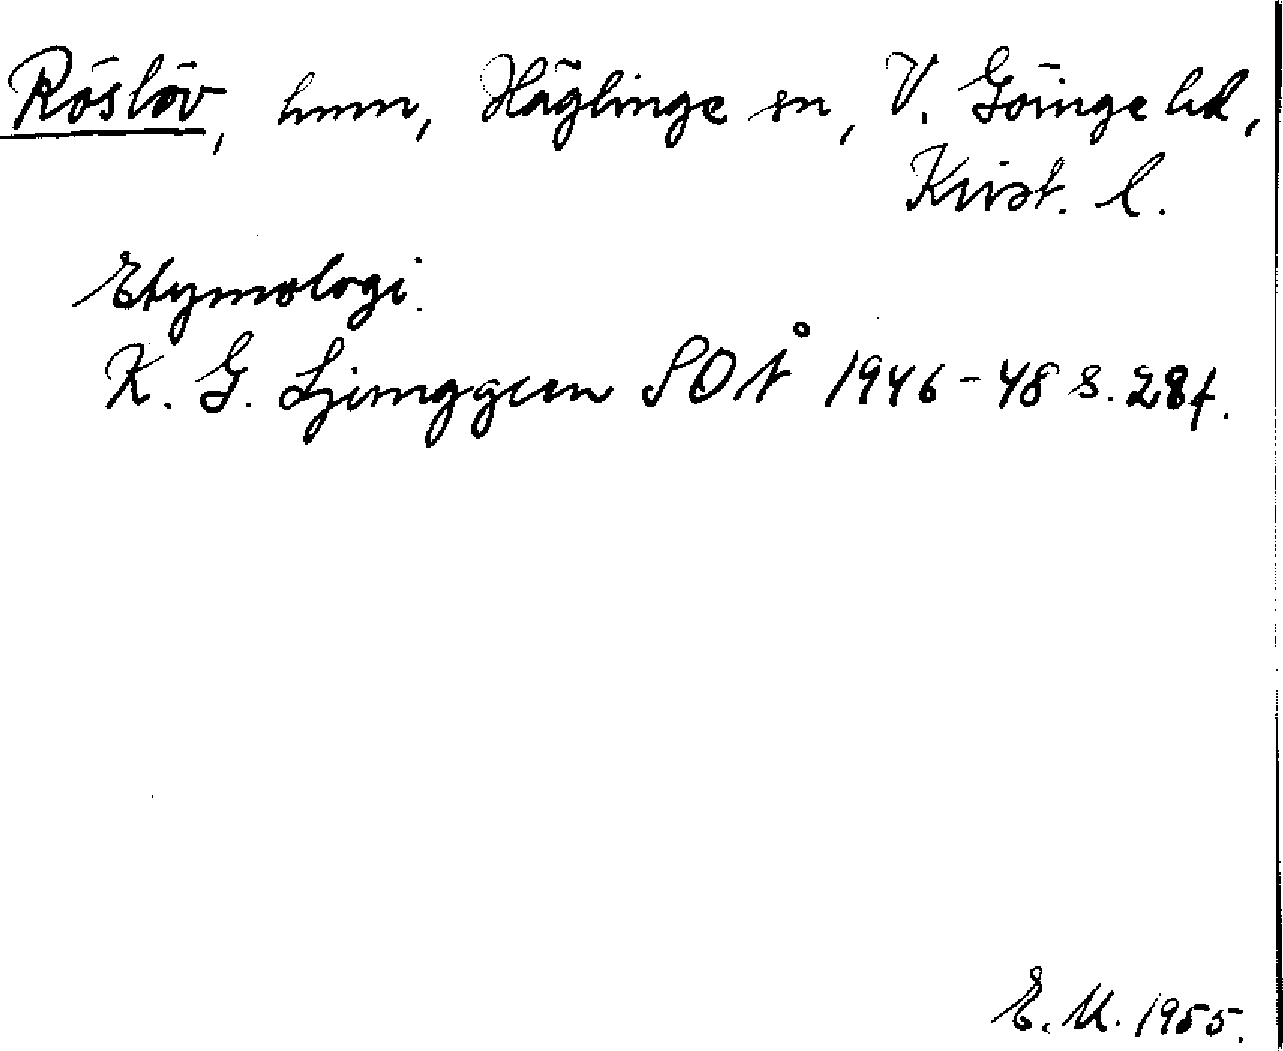 Röslöv, hmn, Häglinge sn, V. Göinge hd,
Krist. l.
Etymologi.
K. G. Ljunggren SOÅ 1946-48 s. 28 f.
E. M. 1955.